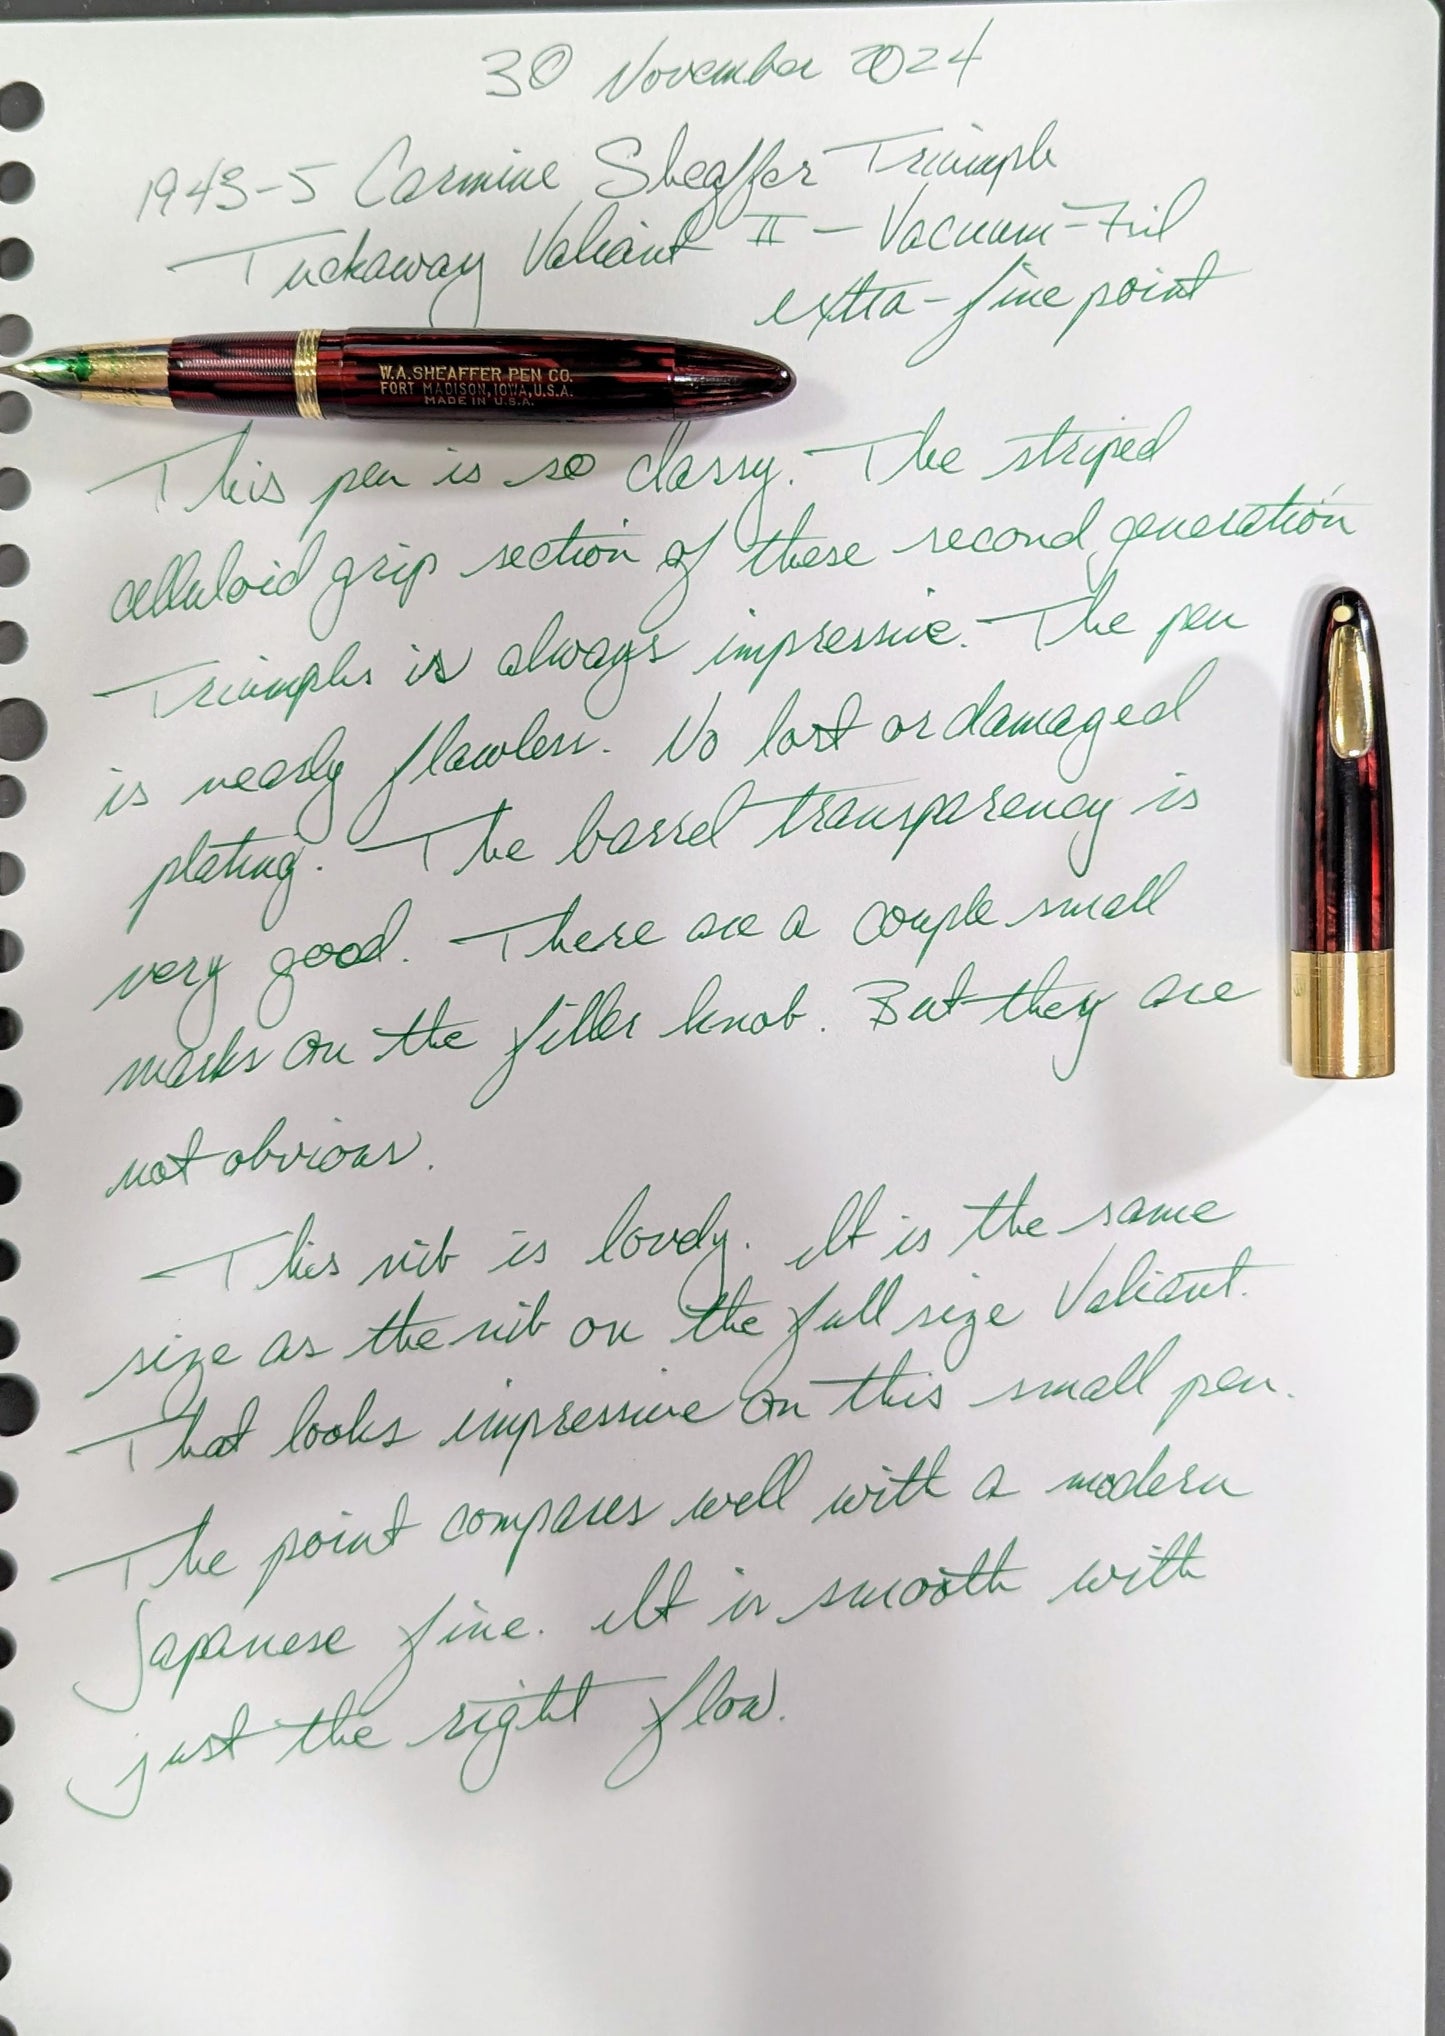 30 November 2024
1943-5 Carmine Sheaffer Triumph
Tuckaway Valiant II - Vacuum-Fil
extra-fine point
W.A. SHEAFFER PEN CO.
FORT MADISON, IOWA, U.S.A.
MADE IN U.S.A.
This pen is so classy. The striped
celluloid grip section of these second generation
Triumphs is always impressive. The pen
is nearly flawless. No lost or damaged
plating. The barrel transparency is
very good. There are a couple small
marks on the filler knob. But they are
not obvious.
This nib is lovely. It is the same
size as the nib on the full size Valiant.
That looks impressive on this small pen.
The point compares well with a modern
Japanese fine. It is smooth with
just the right flow.